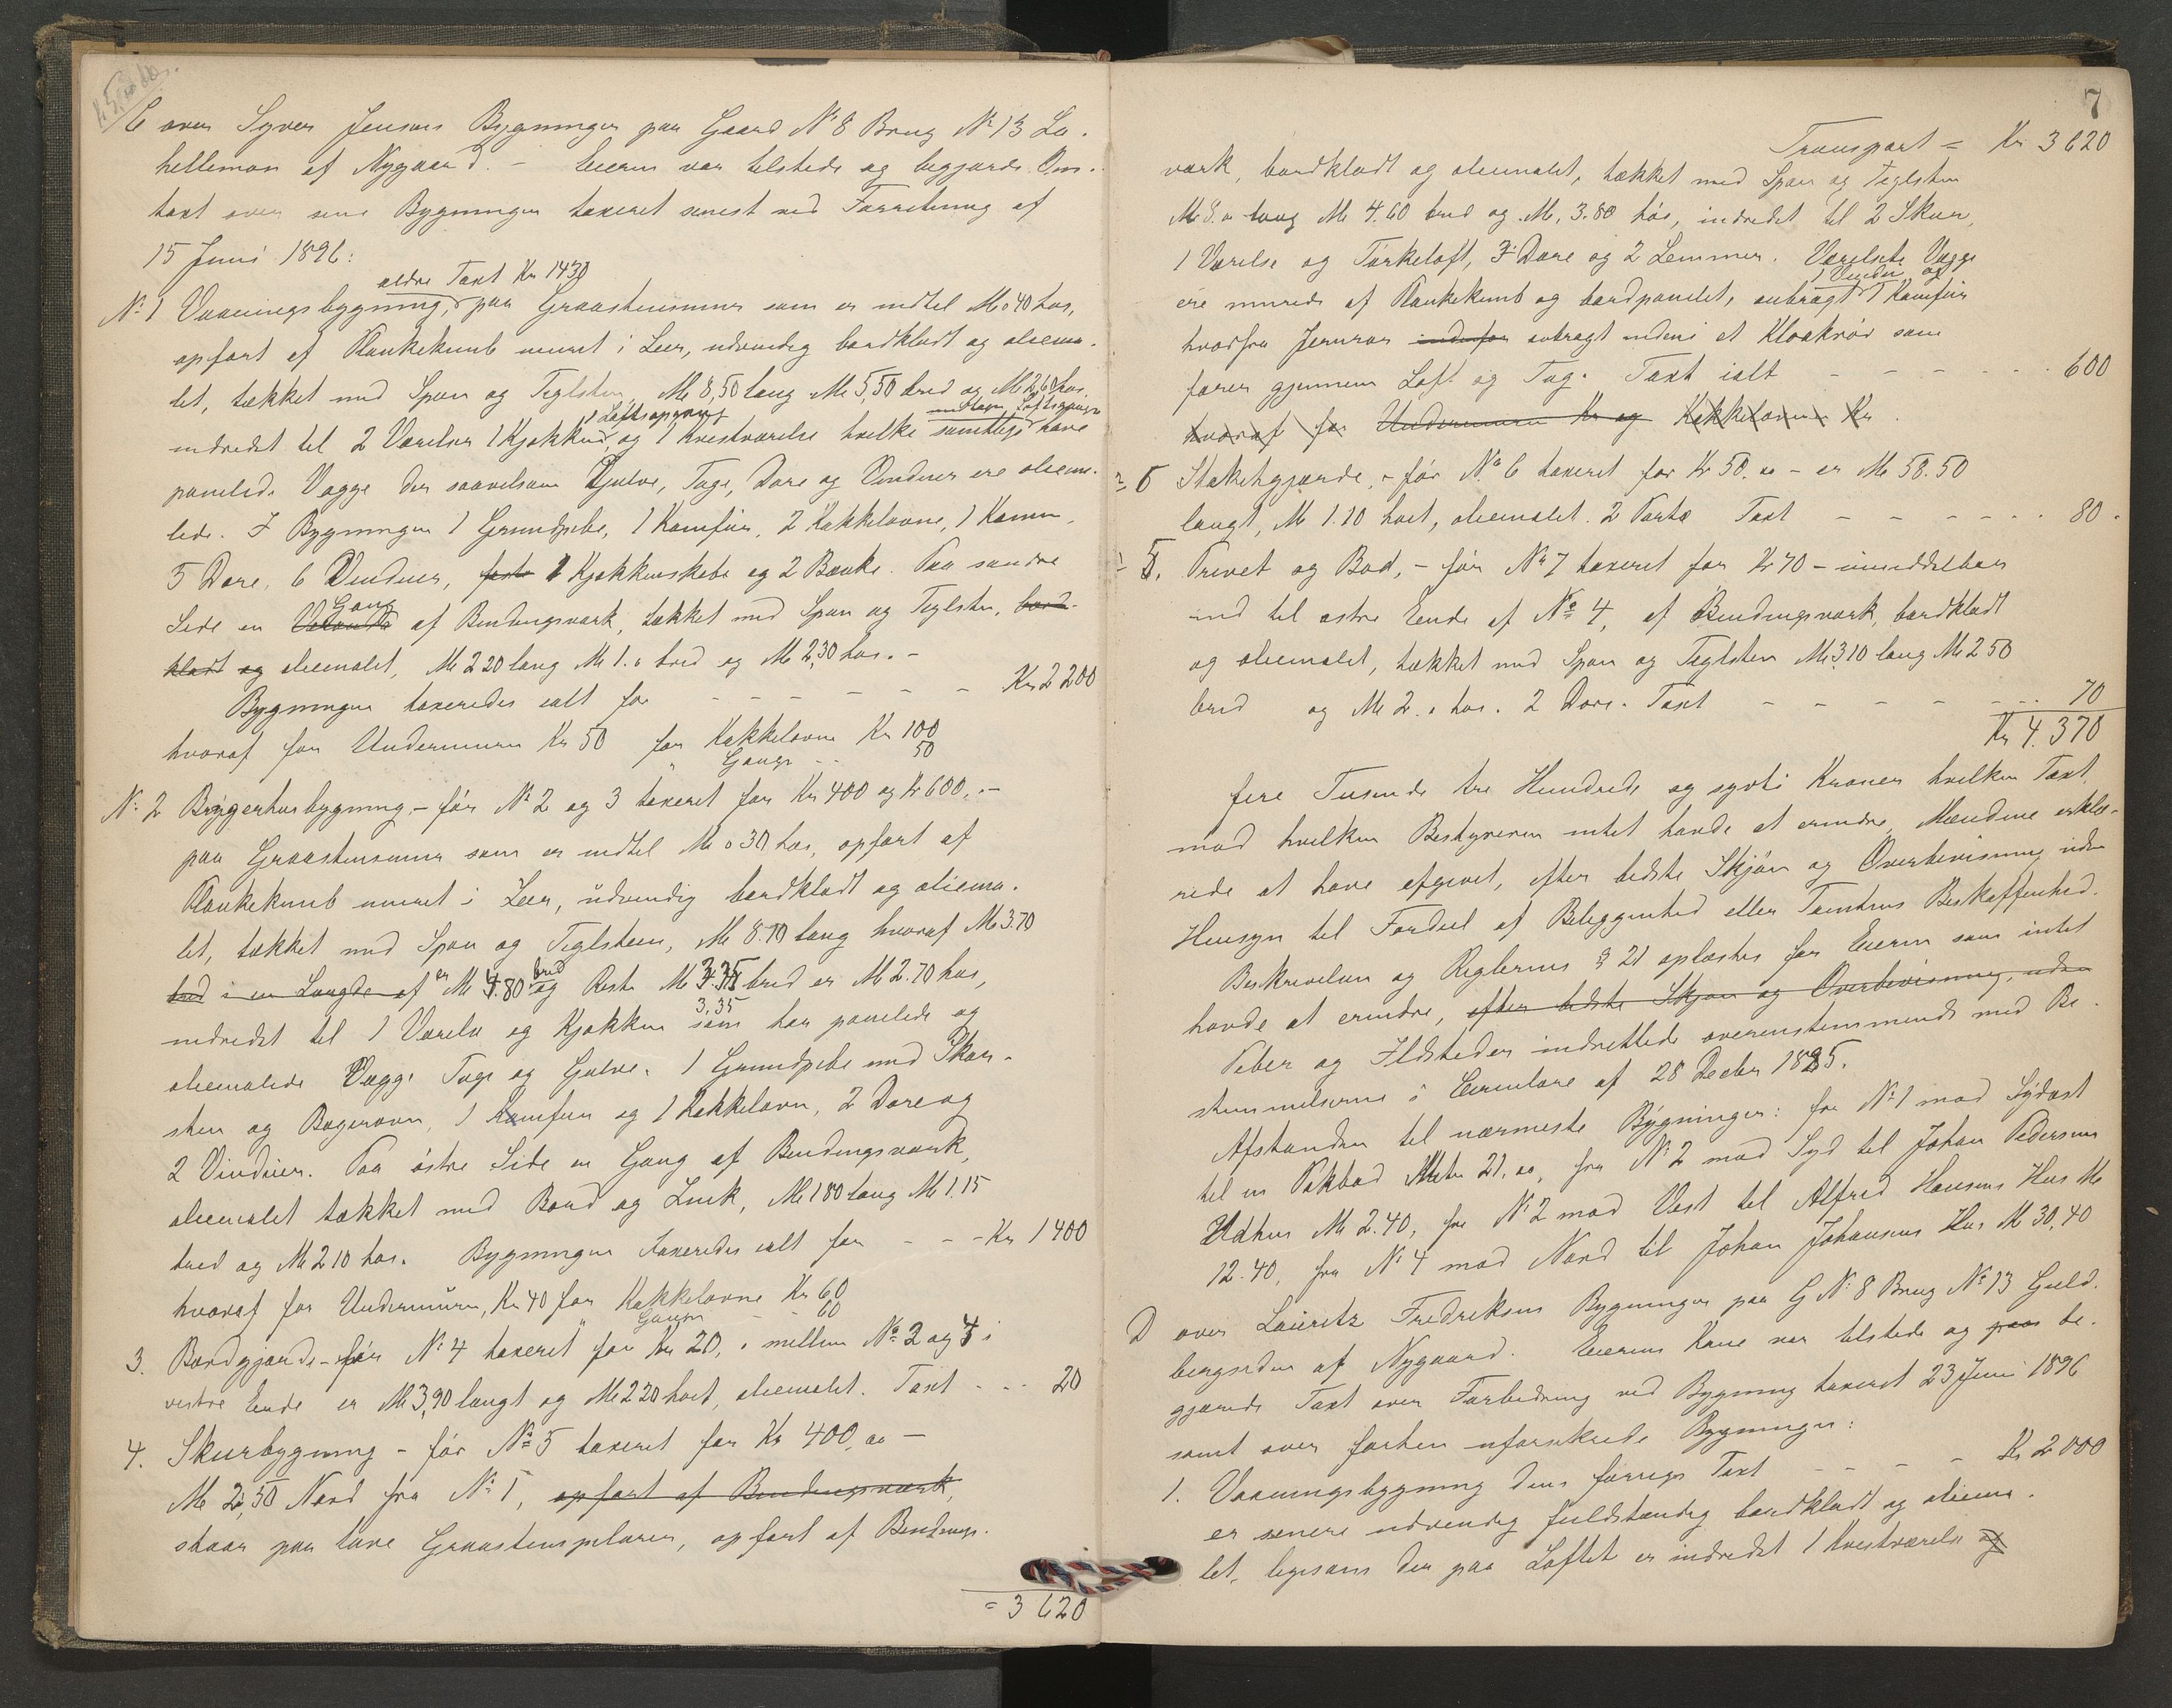 C over Syver Jensens Bygninger paa Gaard No 8 Brug No 13 La-
hellemon af Nygaard. - Eieren var tilstede og begjærede Om-
taxt over sine Bygninger taxeret senest ved Forretning af
15 Juni 1896:
ældre Taxt Kr 1430
No 1 Vaaningsbygning, paa Graastensmur som er indtil M 0 40 høi,
opført af Plankekumb muret i Leer, udvendig bordklædt og oliema-
let, tækket med Spon og Teglsten, M 8,50 lang M 5,50 bred og M 2,60 høi.
1 Loftsopgang mellem Loftsgangen
indredet til 2 Værelser 1 Kjøkken, og 1 Kvistværelse hvilke samtlige have
panelede Vægge der saavelsom Gulve, Tage, Døre og Vinduer ere oliema-
lede. I Bygningen 1 Grundpibe, 1 Komfur, 2 Kakkelovne, 1 Kamin,
5 Døre, 6 Vinduer, faste 1 Kjøkkenskabe og 2 Bænke. Paa søndre
Gang
Side en Veranda af Bindingsværk, tækket med Spon og Teglsten, bord-
klædt og oliemalet, M 2 20 lang M 1.0 bred og M 2,30 høi. -
Bygningen taxeredes ialt for - - - - - - Kr 2200
hvoraf for Undermuren Kr 50 for Kakkelovne Kr 100
" Gange - - 50
No 2 Bryggerhusbygning - før No 2 og 3 taxeret for Kr 400 og Kr 600,. -
paa Graastensmur som er indtil M 0 30 høi, opført af
Plankekumb muret i Leer, udvendig bordklædt og oliema-
let, tækket med Spon og Teglsteen, M 8.70 lang hvoraf M 3.70
bred i en Længde af er M 4.80 bred og Reste M 3.35 bred er M 2.70 høi,
3,35
indredet til 1 Værelse og Kjøkken som har panelede og
oliemalede Vægge Tage og Gulve. 1 Grundpibe med Skor-
sten og Bagerovn, 1 Komfur og 1 Kakkelovn, 2 Døre og
2 Vinduer. Paa østre Side en Gang af Bindingsværk,
oliemalet tækket med Bord og Zink, M 1 80 lang M 1.15
bred og M 2 10 høi. Bygningen taxeredes ialt for - - - Kr 1400
hvoraf for Undermuren, Kr 40 for Kakkelovne Kr 60
" Gangen - 60
3. Bordgjærde - før No 4 taxeret for Kr 20, . mellem No 2 og 4 i
vestre Ende er M 3,90 langt og M 2 20 høit, oliemalet. Taxt - - - 20
4. Skurbygning - før No 5 taxeret for Kr 400, oo -
M 2,50 Nord fra No 1, opført af Bindingsværk,
staar paa lave Graastenspilarer, opført af Bindings-
= 3620
7
Transport = Kr 3620
værk, bordklædt og oliemalet, tækket med Spon og Teglsten
M 8.0 lang M 4.60 bred og M, 3.80 høi, indredet til 2 Skur,
1 Værelse og Tørkeloft, 7 Døre og 2 Lemmer. Værelsets Vægge
1 Vindu og
ere murede af Plankekumb og bordpanelet, anbragt 1 Komfur
hvorfra Jernrør indenfor anbragt indeni et Kloakrør som
fører gjennem Loft og Tag. Taxt ialt - - - - - - 600
hvoraf for Undermuren Kr og Kakkelovnen Kr.
5 Stakitgjærde, - før No 6 taxeret for Kr 50. oo - er M 58.50
langt, M 1.10 høit, oliemalet. 2 Porte Taxt - - - - - - 80.
5. Privet og Bod, - før No 7 taxeret for Kr 70 - umiddelbar
ind til østre Ende af No 4, af Bindingsværk, bordklædt
og oliemalet, tækket med Spon og Teglsten M 3.10 lang M 2 50
bred og M 2.0 høi. 2 Døre. Taxt - - - - - - 70
Kr 4.370
fire Tusinde tre Hundrede og sytti Kroner hvilken Taxt,
mod hvilken Bestyreren intet havde at erindre, Mændene erklæ-
rede at have afgivet, efter bedste Skjøn og Overbevisning uden
Hensyn til Fordeel af Beliggenhed eller Tomtens Beskaffenhed.
Beskrivelsen og Reglernes § 21 oplæstes for Eieren som intet
havde at erindre, efter bedste Skjøn og Overbevisning, uden
Piber og Ildsteder indrettede overensstemmende med Be-
stemmelserne i Cirkulære af 28 Decbr 1895.
Afstanden til nærmeste Bygninger: fra No 1 mod Sydøst
til en Pakbod Metr 21. oo, fra No 2 mod Syd til Johan Pedersens
Udhus M 2.40, fra No 2 mod Vest til Alfred Hansens Hus M
12.40, fra No 4 mod Nord til Johan Johansens Hus M 30,40
D over Lauritz Fredriksens Bygninger paa G No 8 Brug No 13 Guld-
bergsiden af Nygaard. Eierens Kone var tilstede og paa be-
gjærede Taxt over Forbedring ved Bygning taxeret 23 Juni 1896
samt over forhen uforsikrede Bygninger:
1. Vaaningsbygning dens forrige Taxt - - - - Kr 2000
er senere udvendig fuldstændig bordklædt og oliema-
let, ligesom der paa Loftet er indredet 1 Kvistværelse af